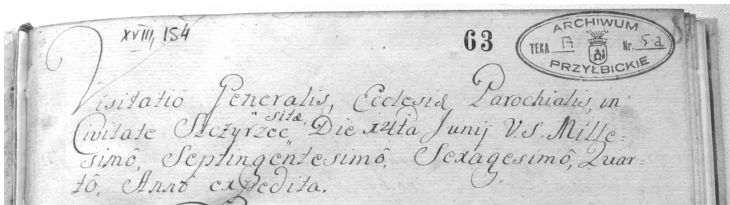 XVIII, 154
63
ARCHIWUM
TEKA 17 Nr. 5a
PRZYŁBICKIE
Visitatio Generalis, Ecclesiæ Parochialis, in
Civitate Szczyrzec sitæ Die Junij V.S. Mille-
simô, Septingentesimô, Sexagesimô, Quar-
tô, Anno expedita.